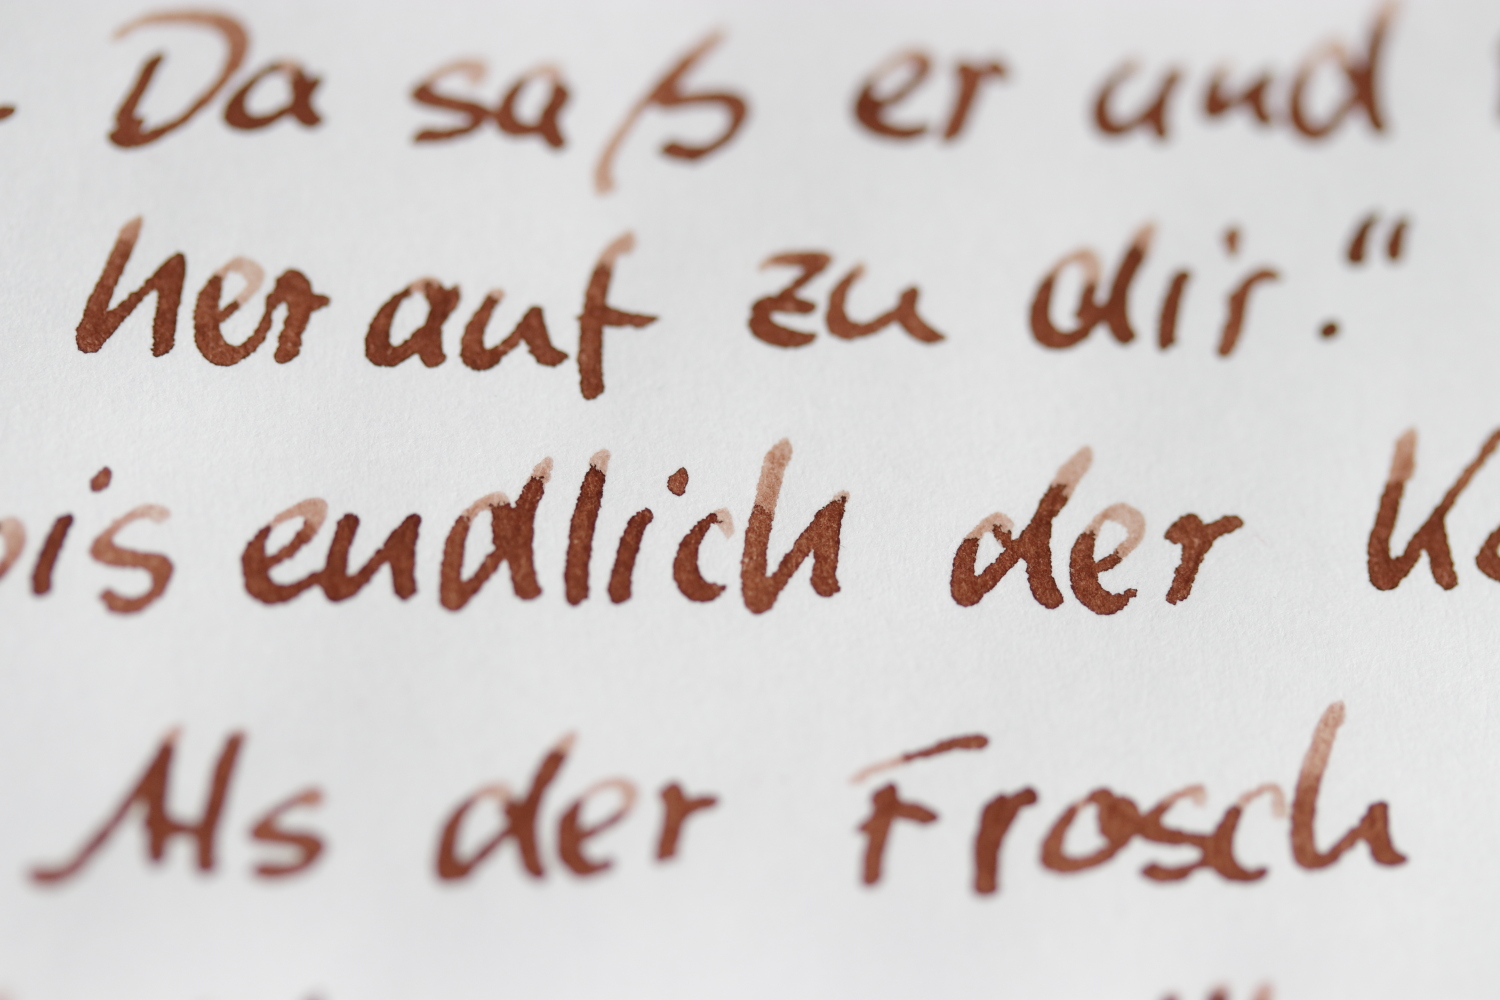 Da saß er und
herauf zu dir.“
bis endlich der Kö
Als der Frosch